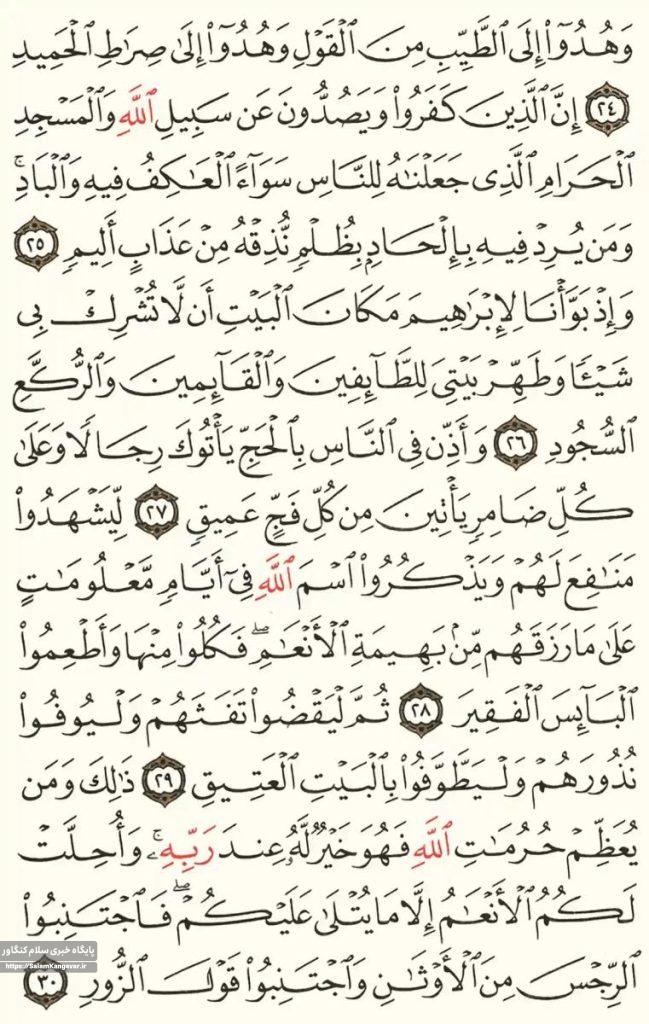 وَهُدُوٓا۟ إِلَى ٱلطَّيِّبِ مِنَ ٱلْقَوْلِ وَهُدُوٓا۟ إِلَىٰ صِرَٰطِ ٱلْحَمِيدِ
﴿٢٤﴾ إِنَّ ٱلَّذِينَ كَفَرُوا۟ وَيَصُدُّونَ عَن سَبِيلِ ٱللَّهِ وَٱلْمَسْجِدِ
ٱلْحَرَامِ ٱلَّذِى جَعَلْنَـٰهُ لِلنَّاسِ سَوَآءً ٱلْعَـٰكِفُ فِيهِ وَٱلْبَادِ ۚ
وَمَن يُرِدْ فِيهِ بِإِلْحَادٍۭ بِظُلْمٍ نُّذِقْهُ مِنْ عَذَابٍ أَلِيمٍ ﴿٢٥﴾
وَإِذْ بَوَّأْنَا لِإِبْرَٰهِيمَ مَكَانَ ٱلْبَيْتِ أَن لَّا تُشْرِكْ بِى
شَيْـًٔا وَطَهِّرْ بَيْتِىَ لِلطَّآئِفِينَ وَٱلْقَآئِمِينَ وَٱلرُّكَّعِ
ٱلسُّجُودِ ﴿٢٦﴾ وَأَذِّن فِى ٱلنَّاسِ بِٱلْحَجِّ يَأْتُوكَ رِجَالًا وَعَلَىٰ
كُلِّ ضَامِرٍ يَأْتِينَ مِن كُلِّ فَجٍّ عَمِيقٍ ﴿٢٧﴾ لِّيَشْهَدُوا۟
مَنَـٰفِعَ لَهُمْ وَيَذْكُرُوا۟ ٱسْمَ ٱللَّهِ فِىٓ أَيَّامٍ مَّعْلُومَـٰتٍ
عَلَىٰ مَا رَزَقَهُم مِّنۢ بَهِيمَةِ ٱلْأَنْعَـٰمِ ۖ فَكُلُوا۟ مِنْهَا وَأَطْعِمُوا۟
ٱلْبَآئِسَ ٱلْفَقِيرَ ﴿٢٨﴾ ثُمَّ لْيَقْضُوا۟ تَفَثَهُمْ وَلْيُوفُوا۟
نُذُورَهُمْ وَلْيَطَّوَّفُوا۟ بِٱلْبَيْتِ ٱلْعَتِيقِ ﴿٢٩﴾ ذَٰلِكَ وَمَن
يُعَظِّمْ حُرُمَـٰتِ ٱللَّهِ فَهُوَ خَيْرٌ لَّهُۥ عِندَ رَبِّهِۦ ۗ وَأُحِلَّتْ
لَكُمُ ٱلْأَنْعَـٰمُ إِلَّا مَا يُتْلَىٰ عَلَيْكُمْ ۖ فَٱجْتَنِبُوا۟
ٱلرِّجْسَ مِنَ ٱلْأَوْثَـٰنِ وَٱجْتَنِبُوا۟ قَوْلَ ٱلزُّورِ ﴿٣٠﴾
پایگاه خبری سلام کنگاور
https://SalamKangevar.ir